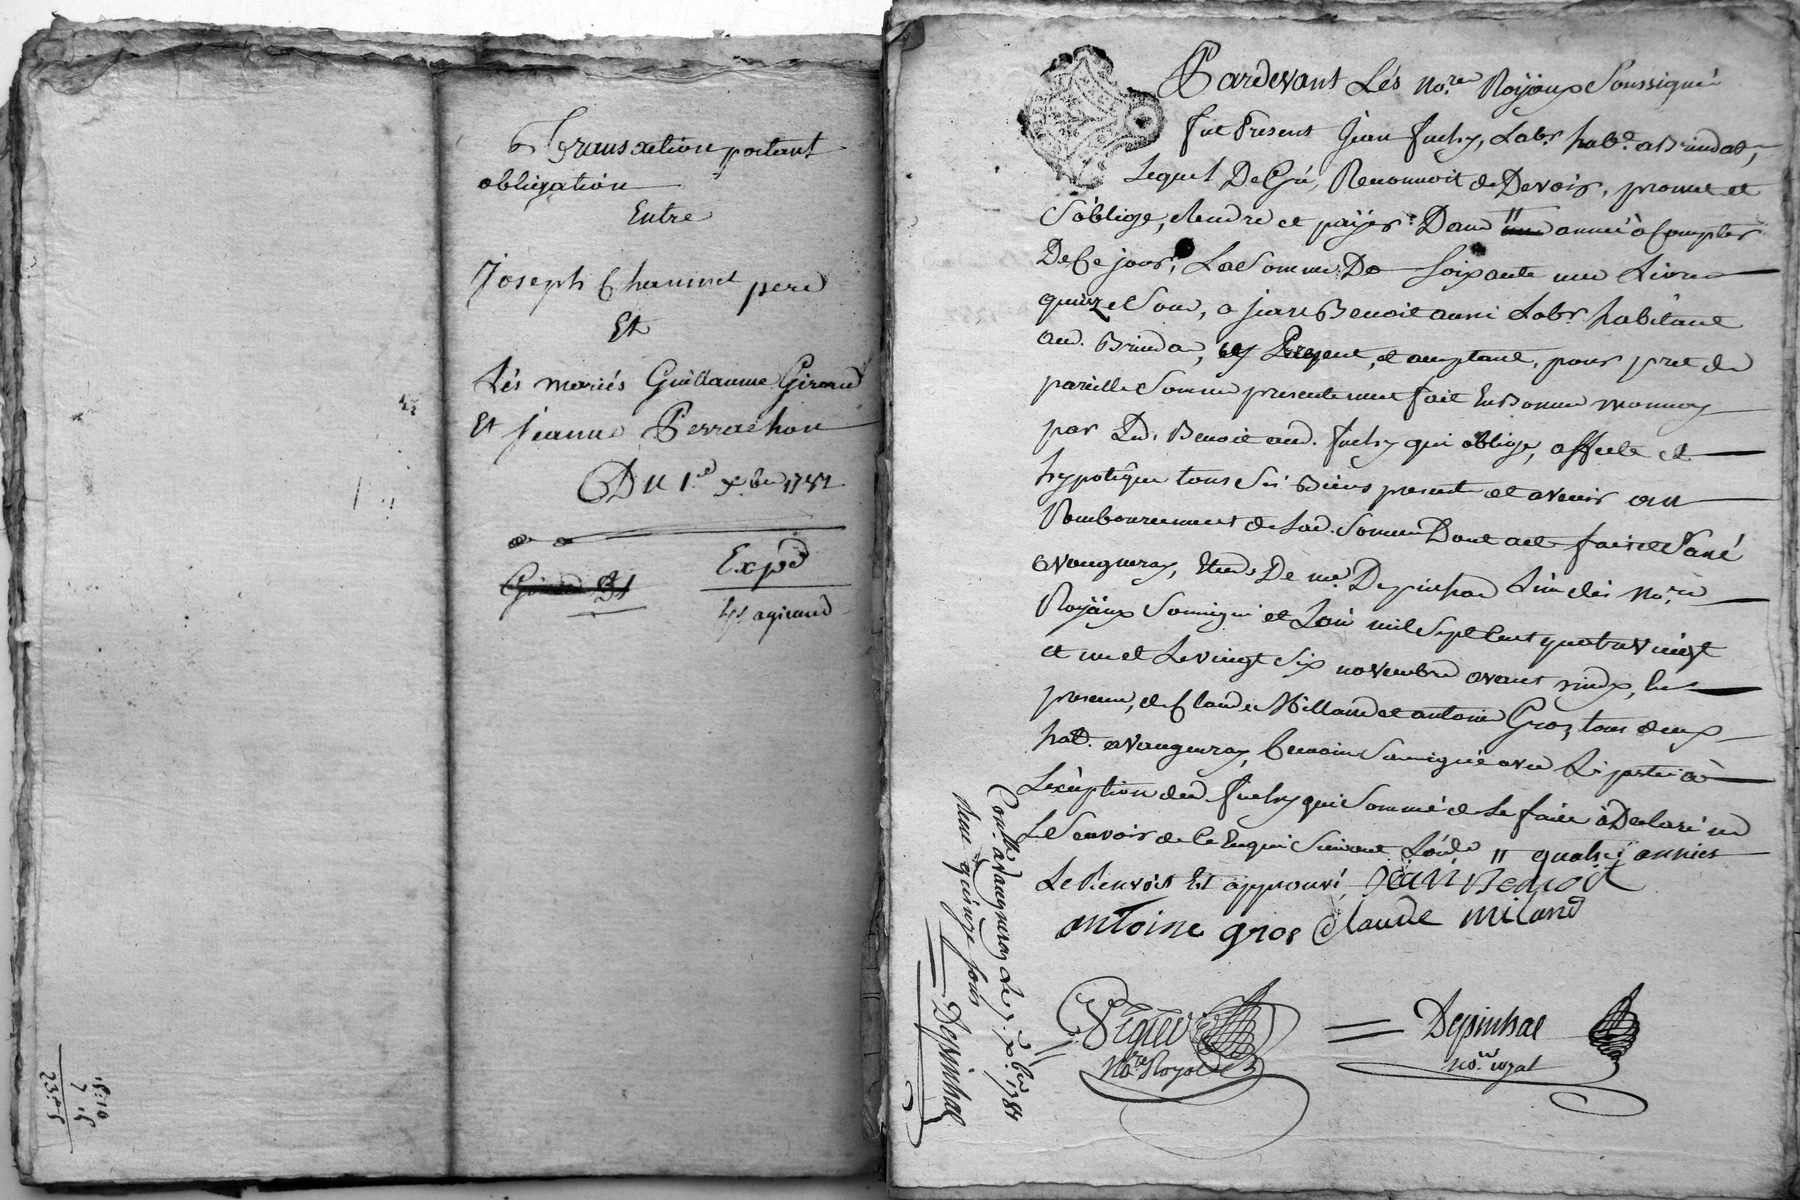 Transaction portant
obligation
Entre
Joseph Chaminet pere
Et
Lés mariés Guillaume Giraud
Et jeanne Perrachon
Du 1.er x.bre 1781
Expd
agiraud
18:10
7 15
Pardevant Lés No.re Royäux Soussignés
fut Present Jean fuchy, Labr. habt. a Brindas,
Lequel De Gré, Reconnoit de Devoir, promet et
S'oblige, Rendre et païer Dans une année à Compter
De Ce jour, La Somme De Soixante une Livres
quinze Sous, a jean Benoit aussi Labr. habitant
aud. Brindas, Present, et acceptant, pour pret de
pareille Somme presentement fait En Bonne monnoy
par Led. Benoit aud. fuchy qui oblige, affecte et
hypotêque tous Ses Biens present et avenir au
Remboursement de Lad. Somme Dont acte fait et Passé
a Vaugneray, Etude De me. Depinhac L'un des No.re
Royäux Soussignés et L'an mil Sept Cent quatre vingt
et un et Le vingt Six novembre avant midy, En
presence, de Claude Milland et antoine Groz tous deux
habt. a Vaugneray, temoins Soussignés avec Les parties à
L'exception dud fuchy qui Sommé de Le faire à Declaré ne
Le Sçavoir de Ce Enquis Suivant L'ord.e " quatre années
Le Renvois Est approuvé Jean Benoit
antoine gros Claude miland
Viguer
No.re Royal
Depinhac
No.re royal
Con.llé a Vaugneray Le 7. x.bre 1781
Reçu quinze sous
Depinhac